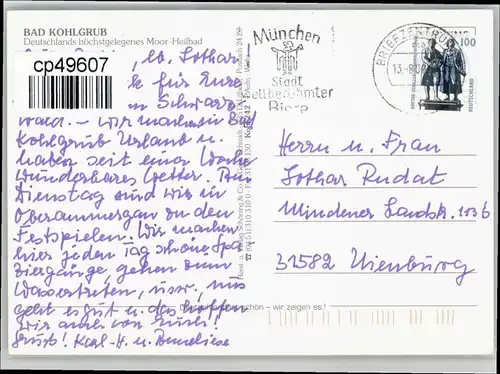 BAD KOHLGRUB
Deutschlands höchstgelegenes Moor-Heilbad
cp49607
lb. Lothar
für Eure
Schwarz-
wald. - wir machen in Bad
Kohlgrub Urlaub u.
haben seit einer Woche
wunderbares Wetter. Am
Dienstag sind wir in
Oberammergau zu den
Festspielen. Wir machen
hier jeden Tag schöne Spa-
ziergänge, gehen zum
Wassertreten, usw., uns
geht es gut u. das hoffen
wir auch von Euch!
Gruß! Karl-H. u. Anneliese
schön – wir zeigen es!
München
Stadt
weltberühmter
Biere
BRIEFZENTRUM
100
DEUTSCHLAND
Herrn u. Frau
Lothar Rudat
Mindener Landstr. 103b
31582 Nienburg